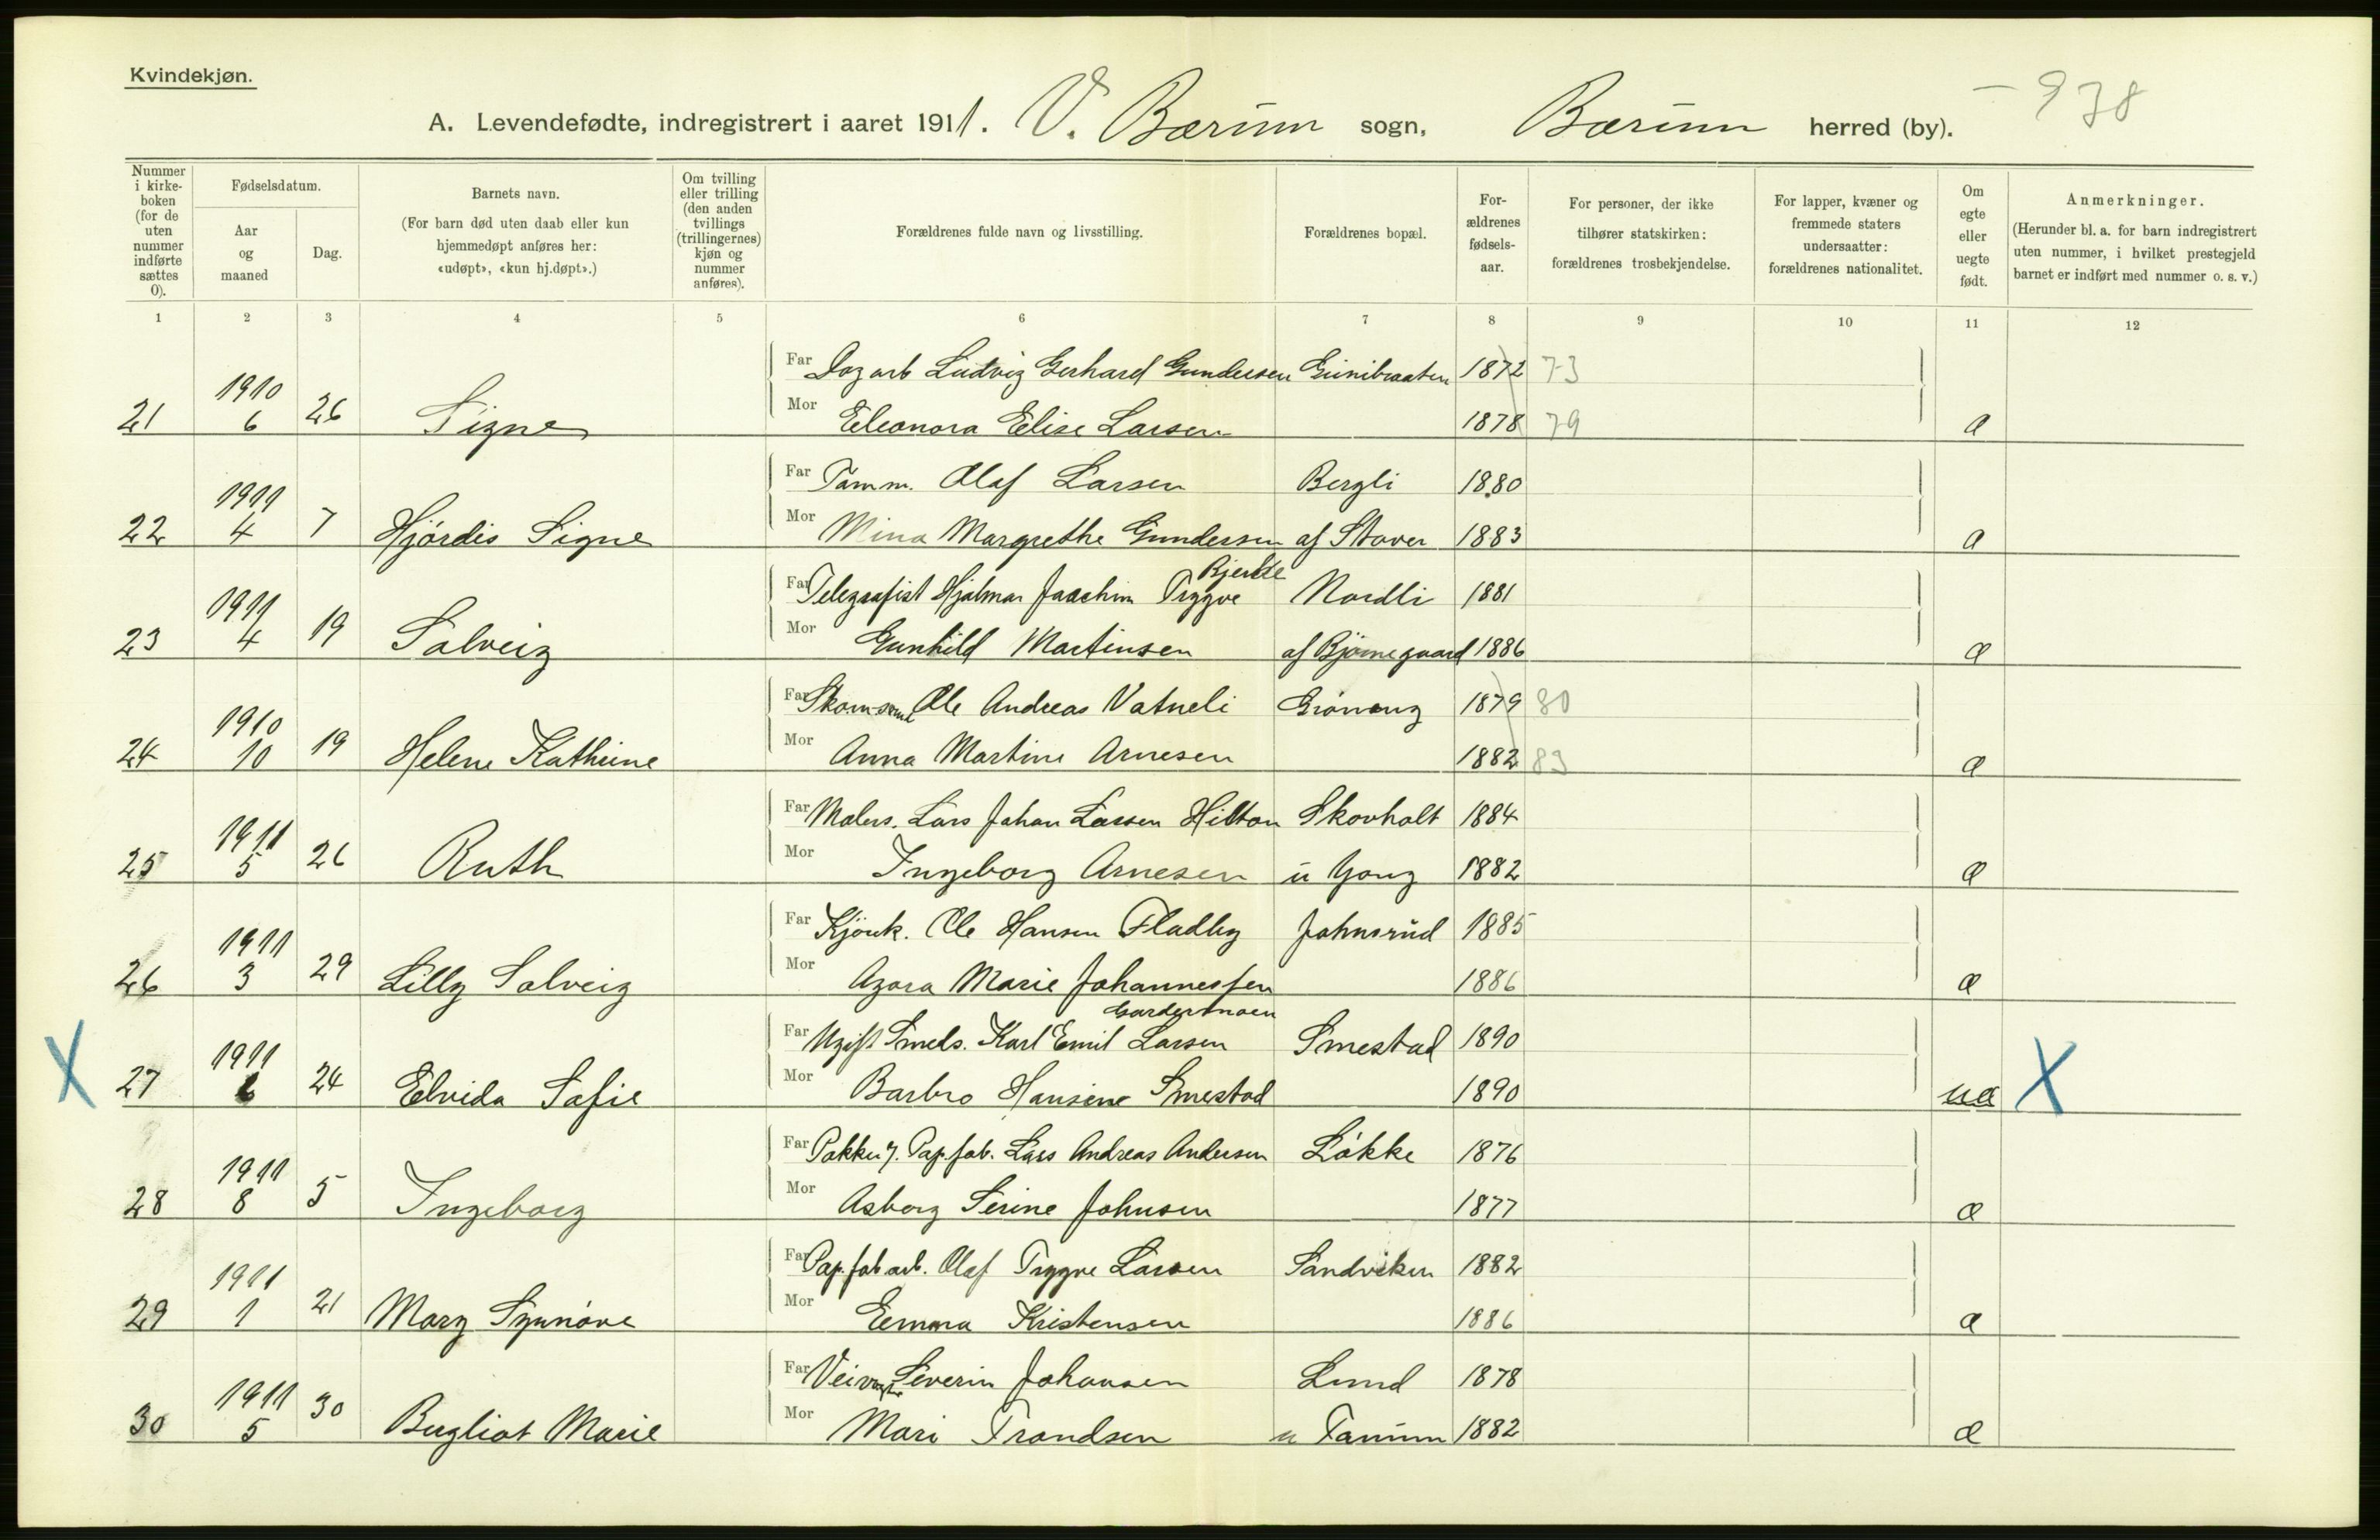 Kvindekjøn.
A. Levendefødte, indregistrert i aaret 1911. V. Bærum sogn, Bærum herred (by). – 938
Nummer i kirke-boken (for de uten nummer indførte sættes 0).
Fødselsdatum.
Aar og maaned
Dag.
Barnets navn.
(For barn død uten daab eller kun hjemmedøpt anføres her: «udøpt», «kun hj.døpt».)
Om tvilling eller trilling (den anden tvillings (trillingernes) kjøn og nummer anføres).
Forældrenes fulde navn og livsstilling.
Forældrenes bopæl.
For-ældrenes fødsels-aar.
For personer, der ikke tilhører statskirken: forældrenes trosbekjendelse.
For lapper, kvæner og fremmede staters undersaatter: forældrenes nationalitet.
Om egte eller uegte født.
Anmerkninger.
(Herunder bl. a. for barn indregistrert uten nummer, i hvilket prestegjeld barnet er indført med nummer o. s. v.)
1 2 3 4 5 6 7 8 9 10 11 12
Far Dagarb Ludvig Gerhard Gundersen 1872 73
21 1910 6 26 Signe Mor Eleonora Elise Larsen 1878 79 æ
Far Tømm. Olaf Larsen Bergli 1880
22 1911 4 7 Hjørdis Signe Mor Mina Margrethe Gundersen af Staver 1883 æ
Far Telegrafist Hjalmar Joachim Trygve Bjerke Nordli 1881
23 1911 4 19 Solveig Mor Gunhild Martinsen af Bjørnegaard 1886 æ
Far Ole Andreas Vatneli 1879 80
24 1910 10 19 Helene Kathrine Mor Anna Martine Arnesen 1882 83 æ
Far Malers. Lars Johan Larsen Hilton Skovholt 1884
25 1911 5 26 Ruth Mor Ingeborg Arnesen u Gong 1882 æ
Far Kjørek. Ole Hansen Fladby Johnsrud 1885
26 1911 3 29 Lilly Solveig Mor Agora Marie Johannessen 1886 æ
Far Ugift Smeds. Karl Emil Larsen Gardermoen Smestad 1890
X 27 1911 6 24 Elvida Sofie Mor Barbro Hansine Smestad 1890 uæ X
Far Pakker v. Pap.fab. Lars Andreas Andersen Løkke 1876
28 1911 8 5 Ingeborg Mor Asborg Serine Johnsen 1877 æ
Far Pap.fabarb. Olaf Trygve Larsen Sandviken 1882
29 1911 1 21 Mary Synnøve Mor Emma Kristensen 1886 æ
Far Severin Johansen Lund 1878
30 1911 5 30 Bergliot Marie Mor Mari Trondsen u Tanum 1882 æ